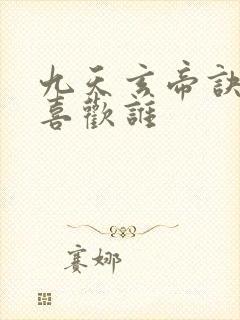 九天玄帝訣
喜歡誰
賽娜